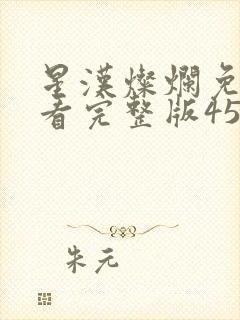 星漢燦爛免
看完整版45
朱元